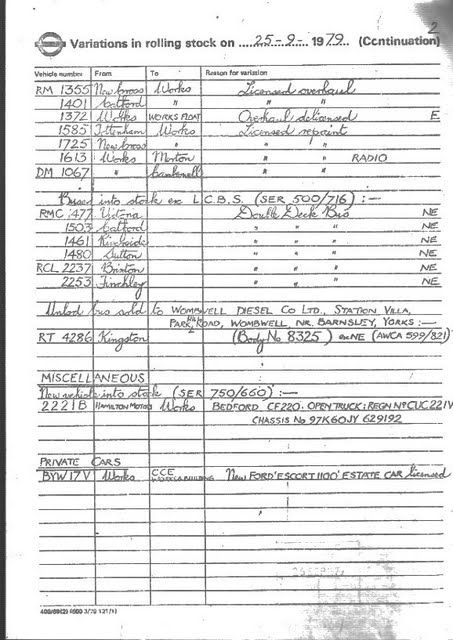 2
Variations in rolling stock on ....25-9- 1979.. (Continuation)
Vehicle number From To Reason for variation
RM 1355 New Cross Works Licensed overhaul
1401 Catford " " "
1372 Works WORKS FLOAT Overhaul delicensed E
1585 Tottenham Works Licensed repaint
1725 New Cross " " "
1613 Works Merton " " RADIO
DM 1067 " Camberwell " "
Buses into stock ex L.C.B.S. (SER 500/716) :—
RMC 1477 Double Deck Bus NE
1503 Catford " " " NE
1461 Riverside " " " NE
1480 Sutton " " " NE
RCL 2237 Brixton " " " NE
2253 Finchley " " " NE
Unlcd bus sold to WOMBWELL DIESEL CO LTD., STATION VILLA,
PARK ROAD, WOMBWELL, NR. BARNSLEY, YORKS :—
RT 4286 Kingston (Body No 8325) ex NE (AWCA 599/821)
MISCELLANEOUS
New vehicle into stock (SER 750/660) :—
2221B HAMILTON MOTORS Works BEDFORD CF220. OPEN TRUCK: REGN No CUC 221V
CHASSIS No 97K60JY 629192
PRIVATE CARS
BYW 17V Works CCE BUILDING New FORD 'ESCORT 1100' ESTATE CAR licensed